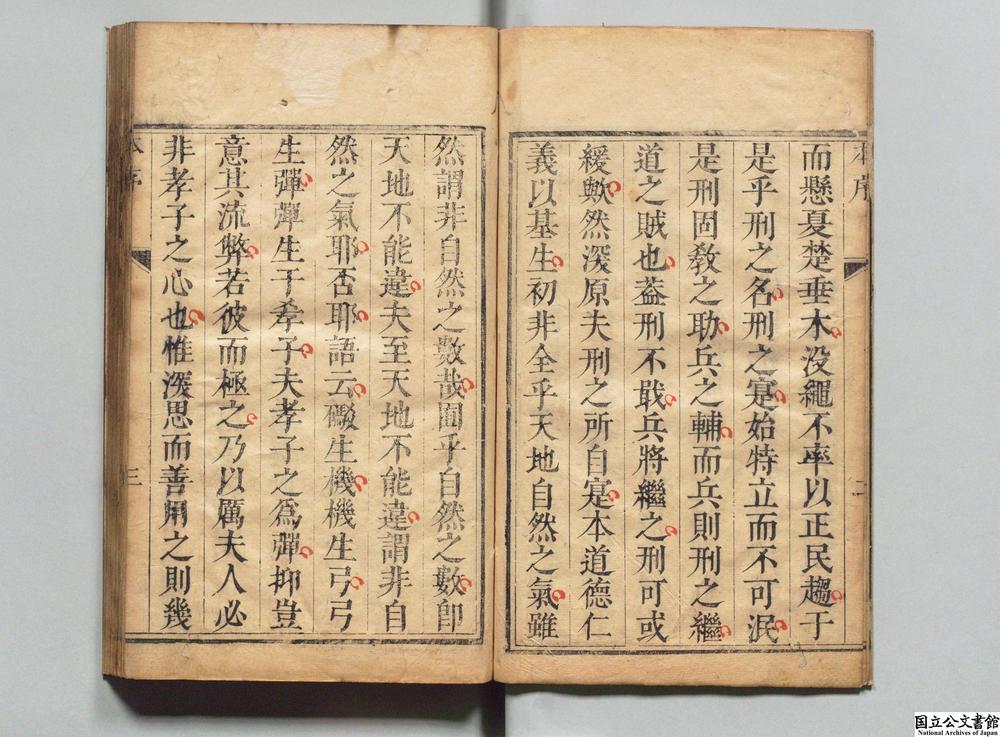 本序
二
而懸夏楚垂木没繩不率以正民趨于
是乎刑之名刑之寔始特立而不可泯
是刑固敎之助兵之輔而兵則刑之繼
道之賊也葢刑不戢兵將繼之刑可或
緩歟然深原夫刑之所自寔本道德仁
義以基生初非全乎天地自然之氣雖
然謂非自然之數哉囿乎自然之數卽
天地不能違夫至天地不能違謂非自
然之氣耶否耶語云礮生機機生弓弓
生彈彈生于孝子夫孝子之爲彈抑豈
意其流弊若彼而極之乃以厲夫人必
非孝子之心也惟深思而善用之則幾
本序
三
国立公文書館
National Archives of Japan